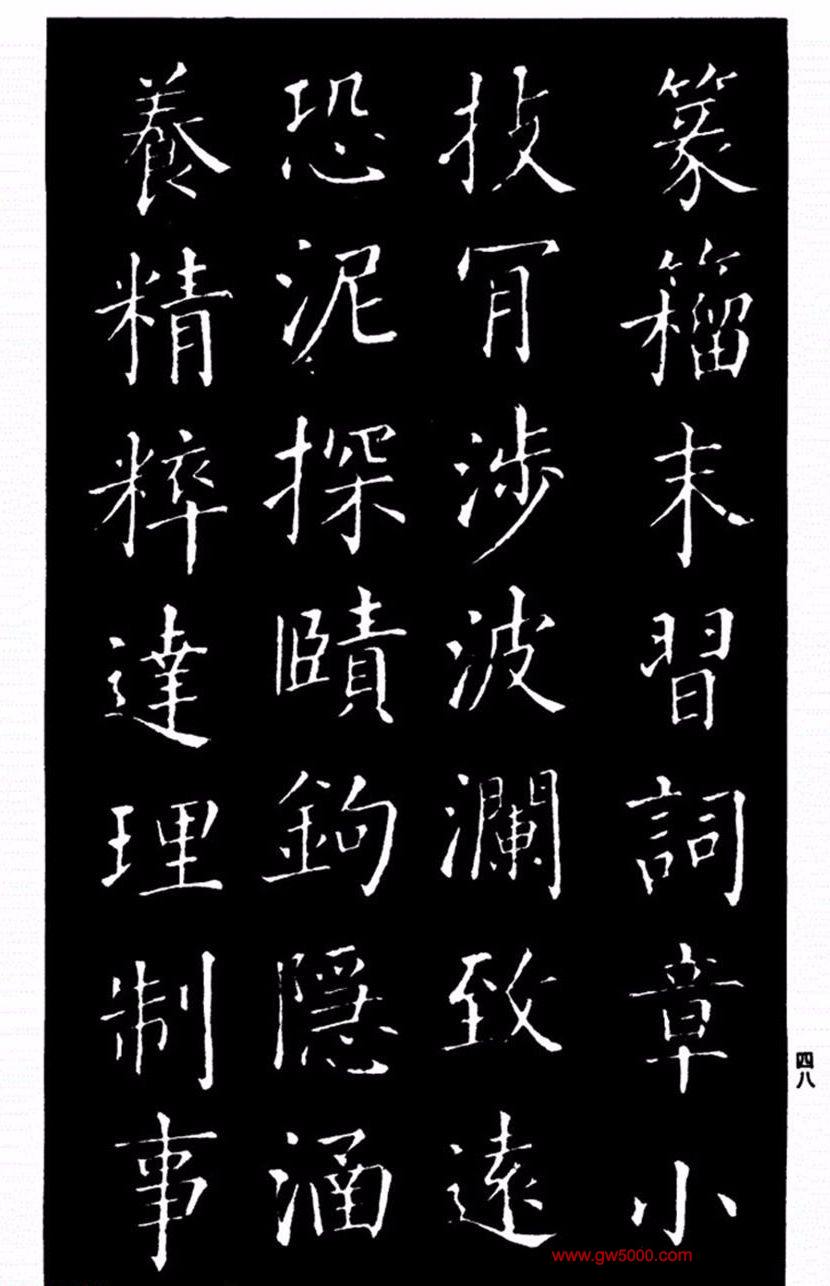 篆籕末習詞章小
技肎涉波瀾致遠
恐泥探賾鉤隱涵
養精粹達理制事
四八
www.gw5000.com